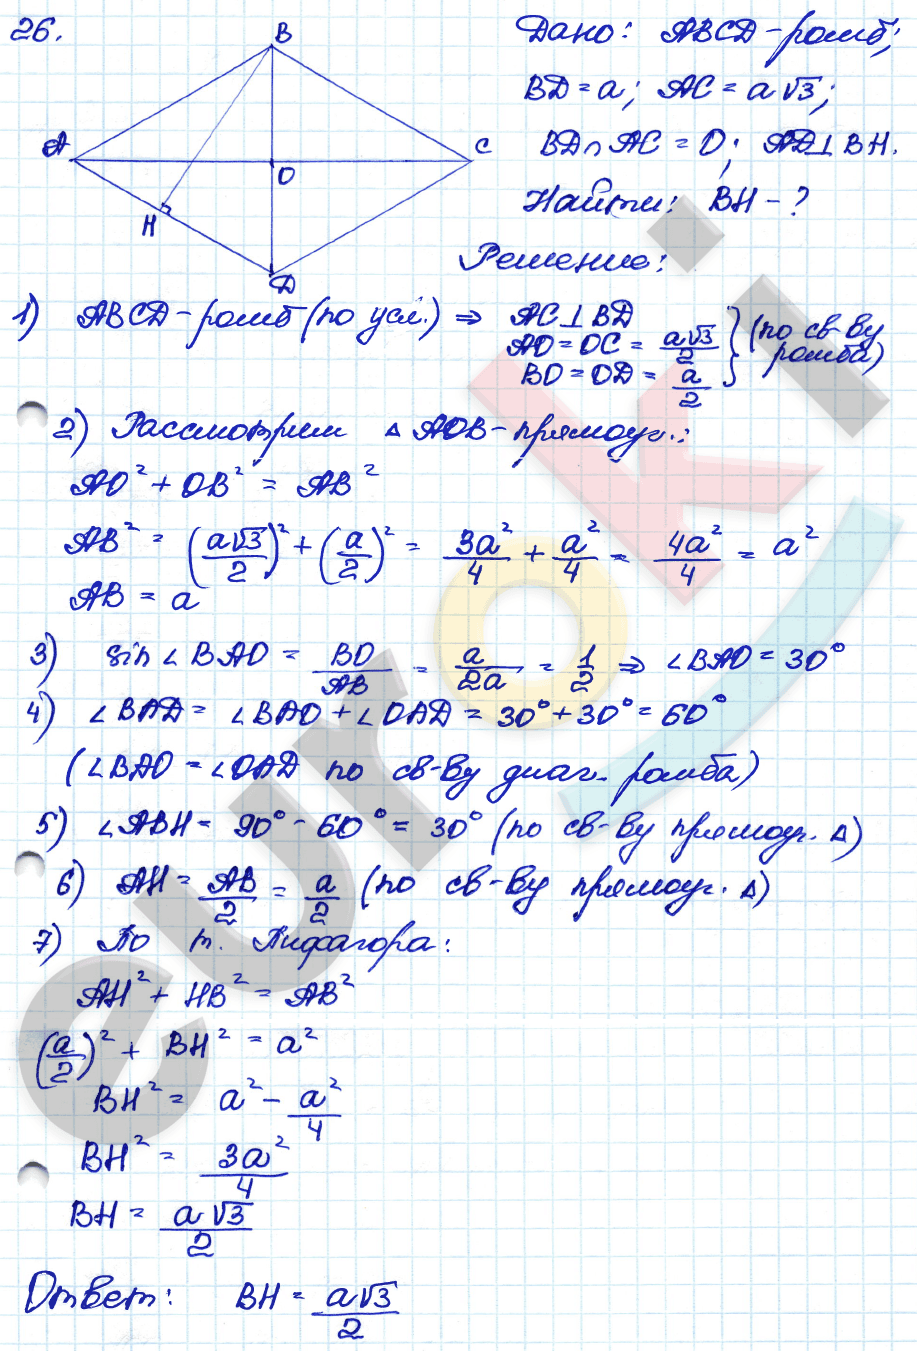 26.
B
A
C
O
H
D
Дано: ABCD - ромб;
BD = a; AC = a√3;
BD ∩ AC = O; AD ⊥ BH.
Найти: BH - ?
Решение:
1) ABCD - ромб (по усл.) ⇒ AC ⊥ BD
AO = OC = a√3/2
BO = OD = a/2 } (по св-ву ромба)
2) Рассмотрим △ AOB - прямоуг.:
AO² + OB² = AB²
AB² = (a√3/2)² + (a/2)² = 3a²/4 + a²/4 = 4a²/4 = a²
AB = a
3) sin ∠ BAO = BO/AB = a/2a = 1/2 ⇒ ∠BAO = 30°
4) ∠ BAD = ∠ BAO + ∠ OAD = 30° + 30° = 60°
(∠BAO = ∠OAD по св-ву диаг. ромба)
5) ∠ ABH = 90° - 60° = 30° (по св-ву прямоуг. △)
6) AH = AB/2 = a/2 (по св-ву прямоуг. △)
7) По т. Пифагора:
AH² + HB² = AB²
(a/2)² + BH² = a²
BH² = a² - a²/4
BH² = 3a²/4
BH = a√3/2
Ответ: BH = a√3/2
euroki